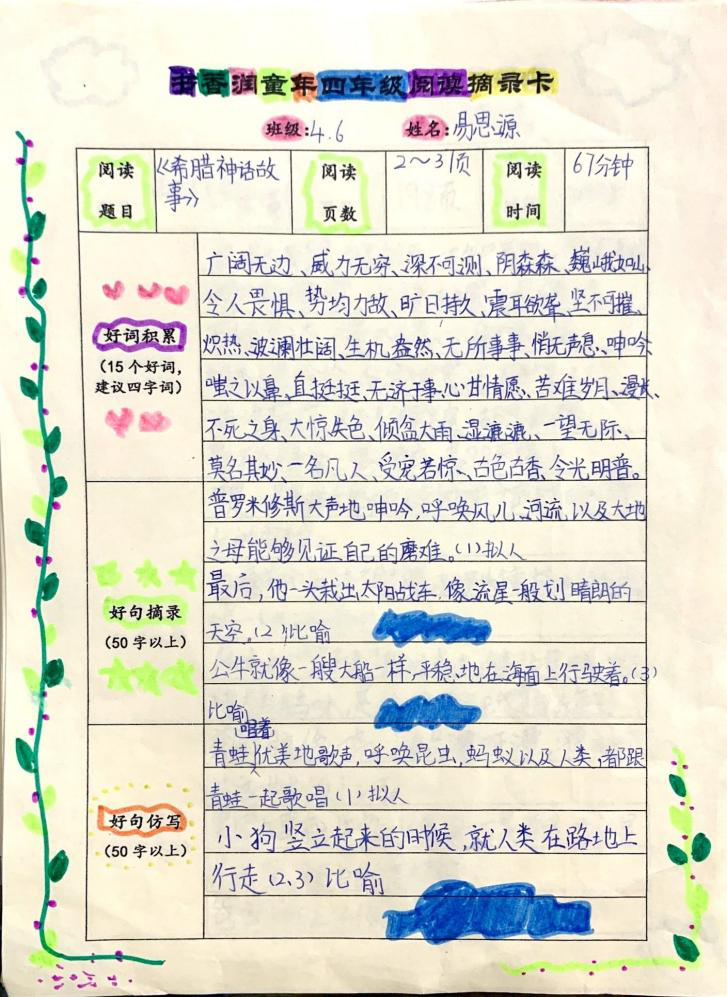 书香润童年四年级阅读摘录卡
班级:4.6 姓名:易思源
阅读题目
《希腊神话故事》
阅读页数
2～31页
阅读时间
67分钟
好词积累
(15个好词，
建议四字词)
广阔无边、威力无穷、深不可测、阴森森、巍峨如山、
令人畏惧、势均力敌、旷日持久、震耳欲聋、坚不可摧、
炽热、波澜壮阔、生机盎然、无所事事、悄无声息、呻吟、
嗤之以鼻、直挺挺、无济于事、心甘情愿、苦难岁月、漫长、
不死之身、大惊失色、倾盆大雨、湿漉漉、一望无际、
莫名其妙、一名凡人、受宠若惊、古色古香、令光明普。
好句摘录
(50字以上)
普罗米修斯大声地呻吟，呼唤风儿、河流，以及大地
之母能够见证自己的磨难。(1)拟人
最后，他一头栽出太阳战车，像流星一般划晴朗的
天空。(2)比喻
公牛就像一艘大船一样，平稳地在海面上行驶着。(3)
比喻
好句仿写
(50字以上)
青蛙唱着优美地歌声，呼唤昆虫，蚂蚁以及人类，都跟
青蛙一起歌唱(1)拟人
小狗竖立起来的时候，就人类在路地上
行走(2、3)比喻